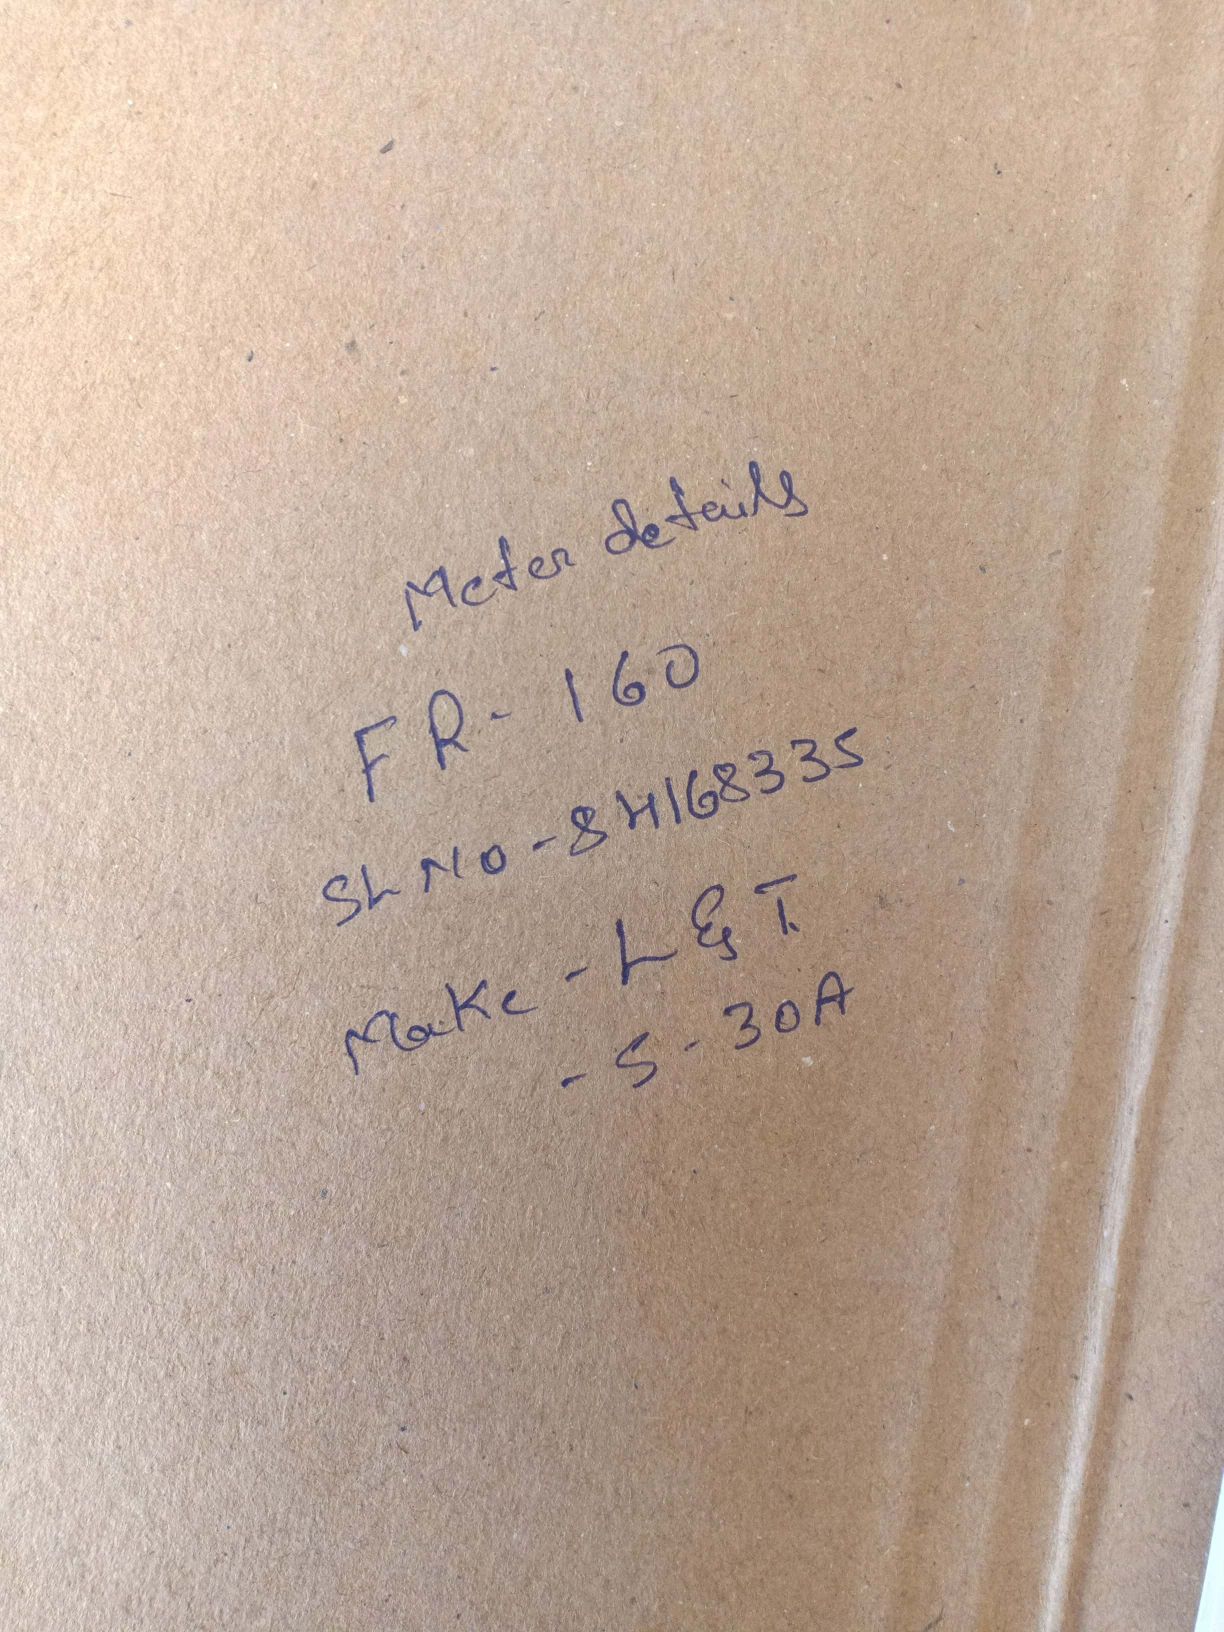 Meter details
FR- 160
SL NO - 84168335
Make - L&T
- 5-30A